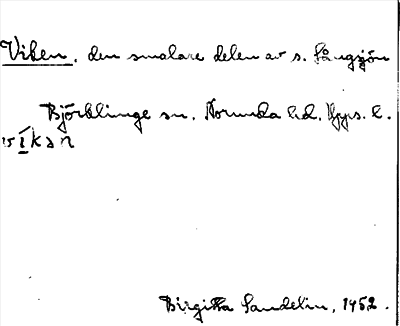 Viken, den smalare delen av s. Långsjön
Björklinge sn. Norunda hd. Upps. l.
vi̱kən
Birgitta Sandelin, 1952.